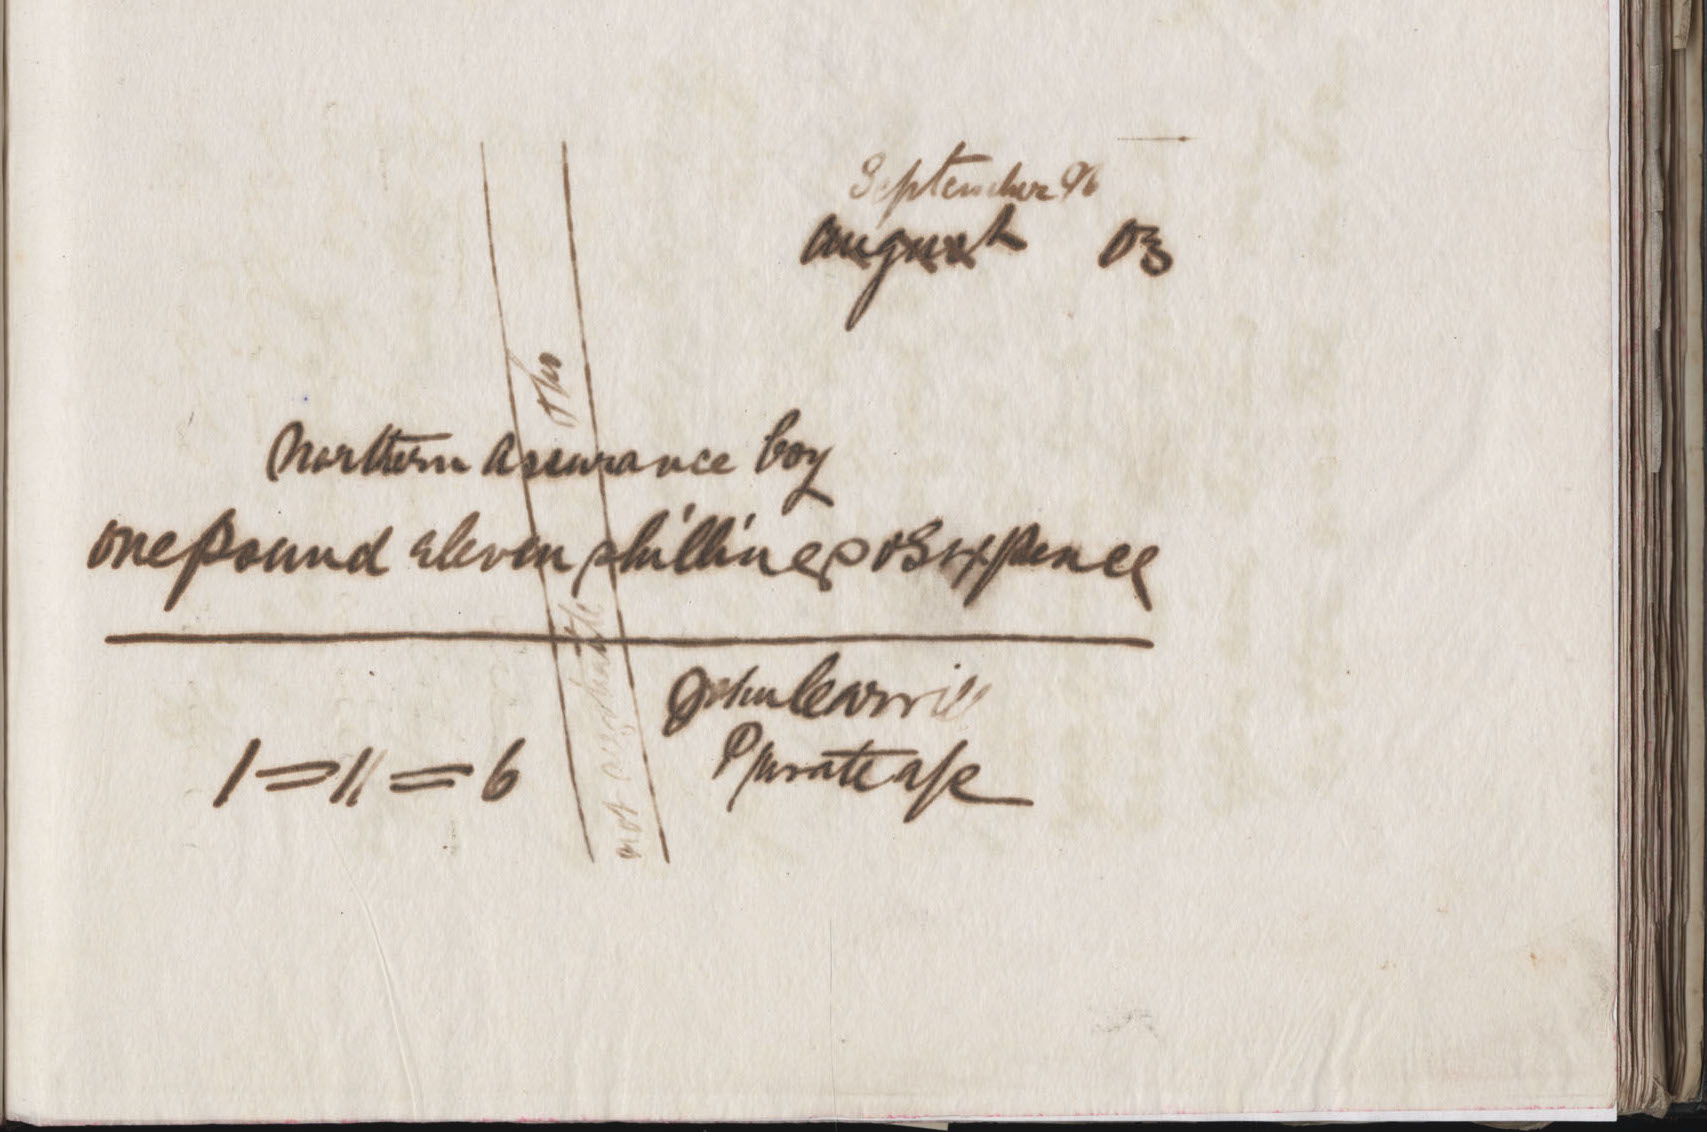 September 96
august 03
Northern Assurance Coy
one pound eleven shillings & Sixpence
John Carvill
Private a/c
1 = 11 = 6
not negotiable